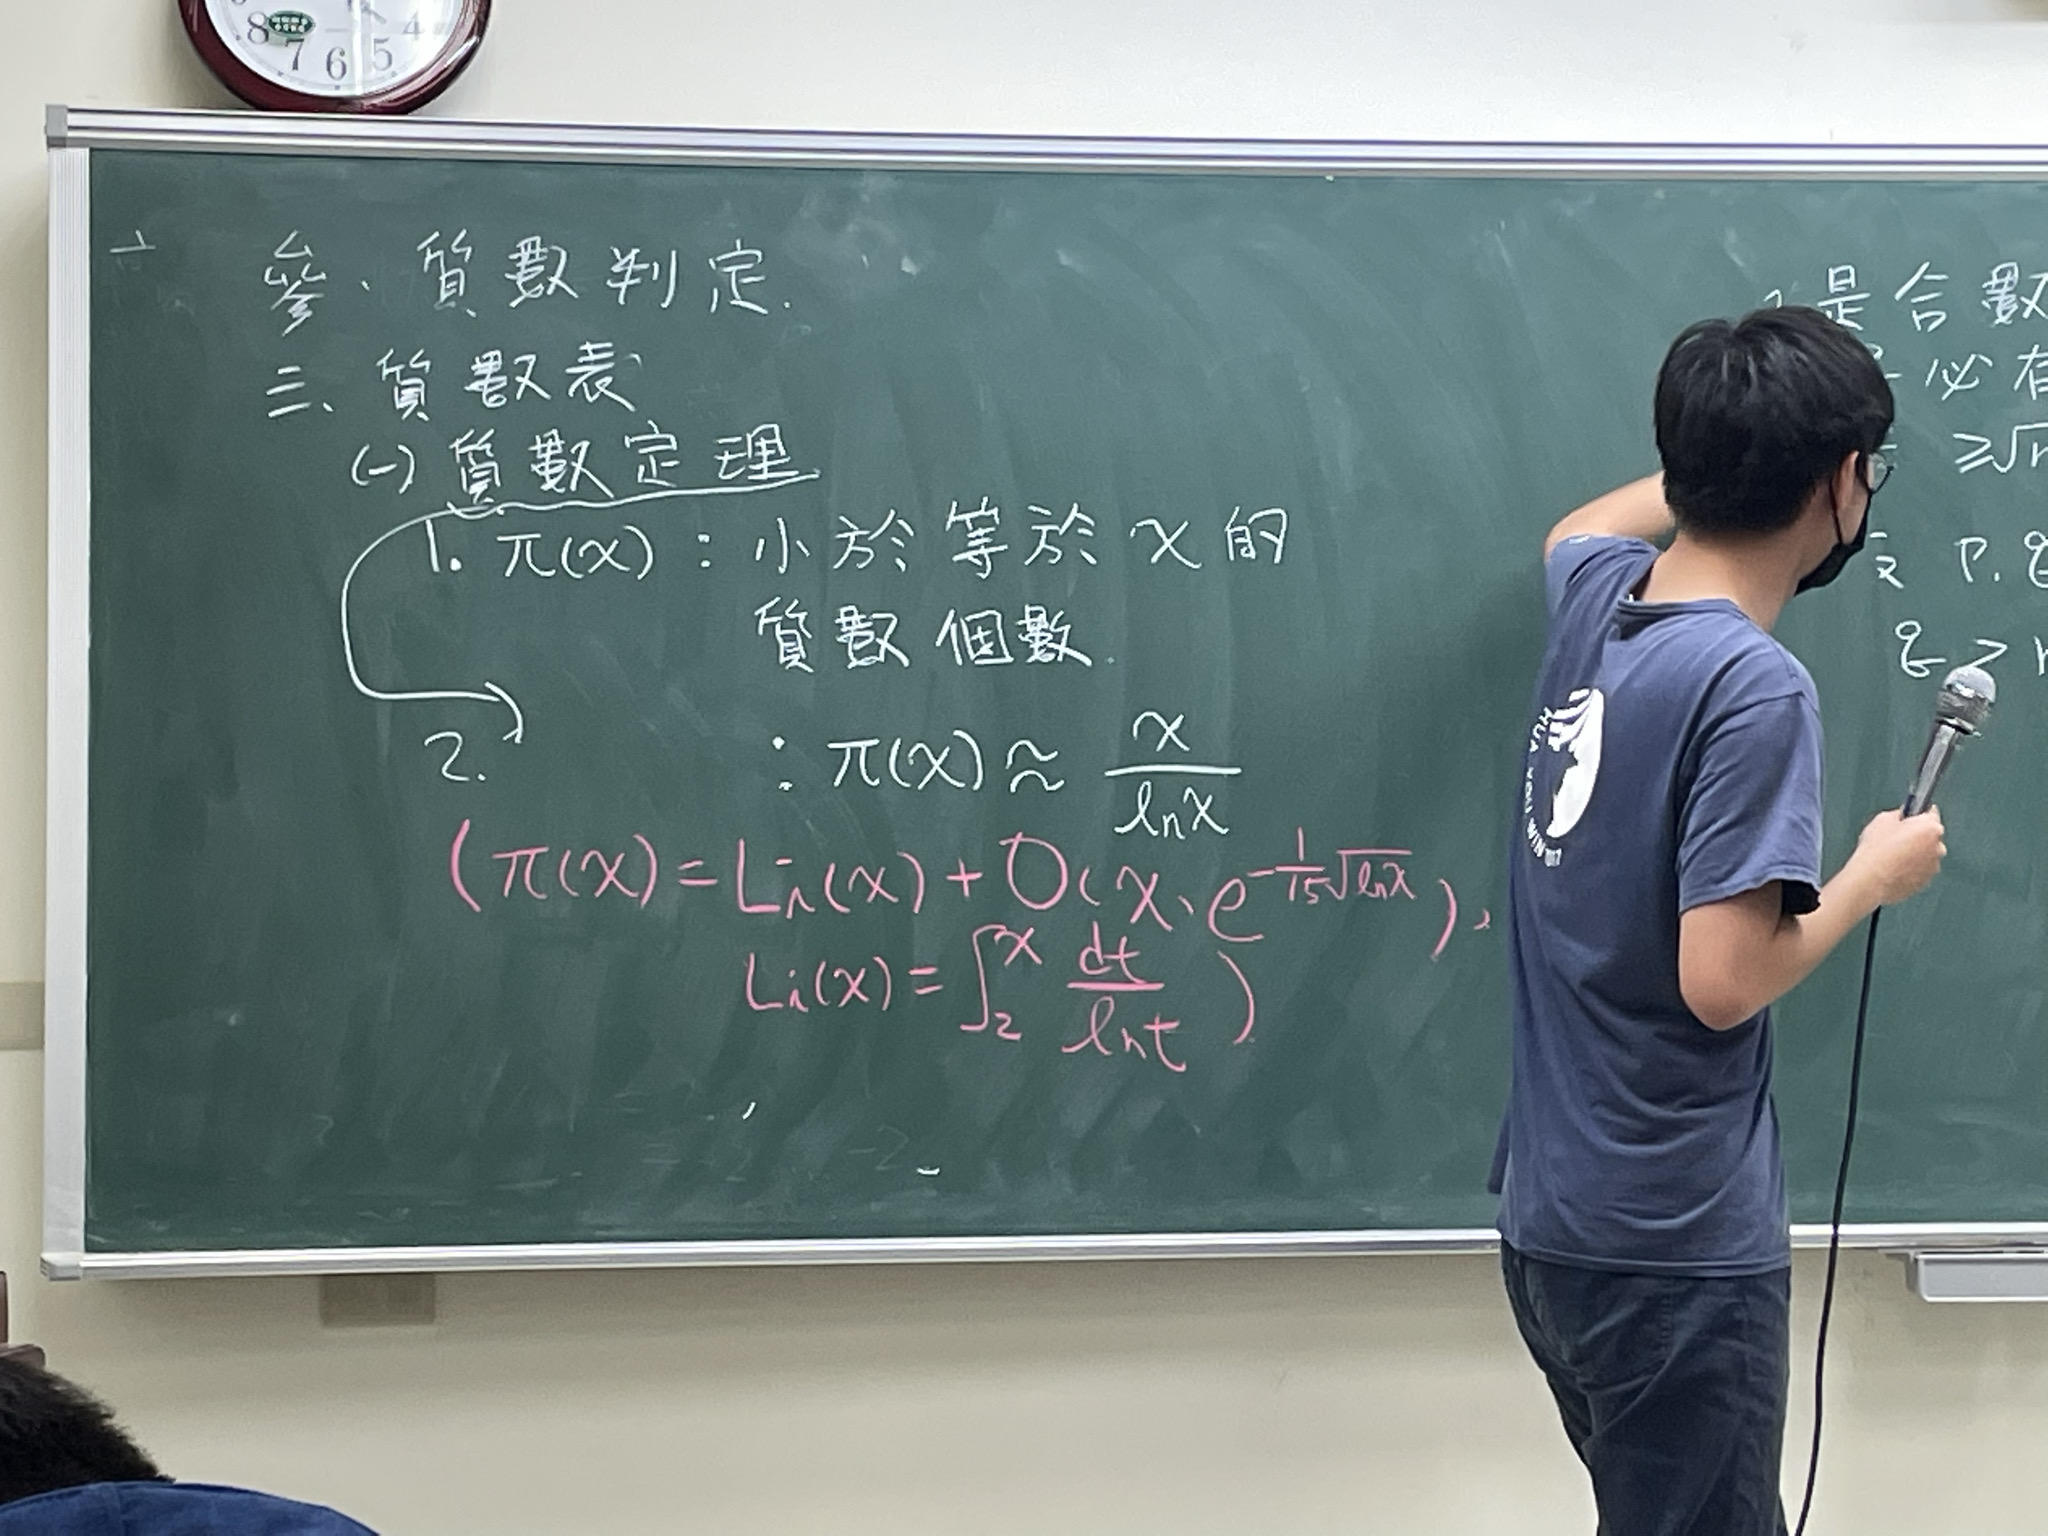 8 7 6 5 4
參、質數判定.
二、質數表
(一) 質數定理
1. π(x) : 小於等於 x 的
質數個數.
2. : π(x) ≈ x/ln x
(π(x) = Li(x) + O(x、e^{-1/15 √ln x}),
Li(x) = ∫_2^x dt/ln t )
是合數
必有
≥√n
P. q
q >